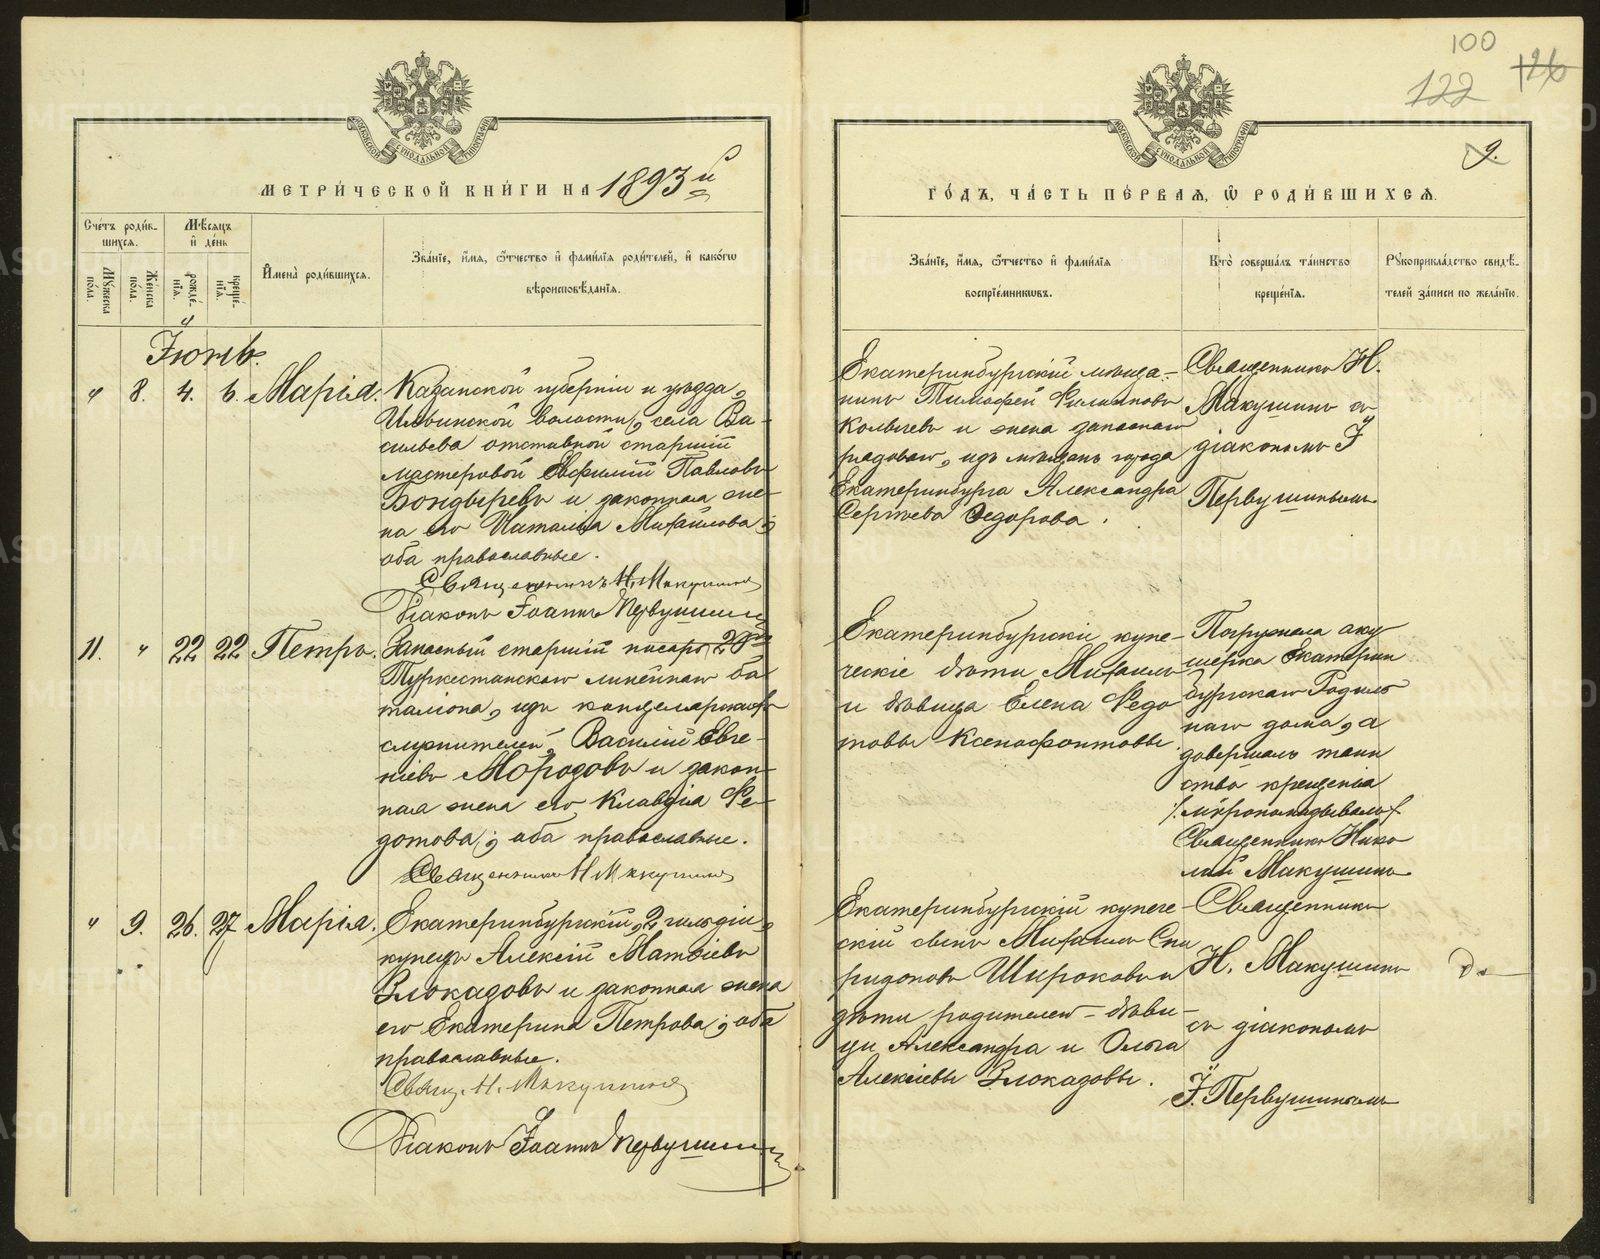 100
122
126
9.
МЕТРИ́ЧЕСКОЙ КНИ́ГИ НА 1893й
ГО́ДЪ, ЧА́СТЬ ПЕ́РВАЯ, Ѡ҆ РОДИ́ВШИХСѦ.
Сче́тъ роди́в-
шихсѧ.
Мꙋ́жеска
пола.
Же́нска
по́ла.
Мѣ́сѧцъ
и҆ де́нь
рожде́-
нїѧ.
креще́-
нїѧ.
И҆мена̀ роди́вшихсѧ.
Зва́нїе, и҆́мѧ, ѻ҆́тчество и҆ фами́лїѧ роди́телей, и҆ како́гѡ
вѣроисповѣ́данїѧ.
Зва́нїе, и҆́мѧ, ѻ҆́тчество и҆ фами́лїѧ
воспрїе́мникѡвъ.
Кто̀ соверша́лъ та́инство
креще́нїѧ.
Рꙋкоприкла́дство свидѣ́-
телей за́писи по жела́нїю.
Іюнь.
" 8. 4. 6. Марія.
Казанской губерніи и уѣзда,
Ильинской волости, села Ва-
сильева отставной старшій
мастеровой Евфимій Павловъ
Бондыревъ и законная же-
на его Наталья Михайлова;
оба православные.
Священникъ Н. Макушинъ
Діаконъ Іоаннъ Первушинъ
Екатеринбургскій мѣща-
нинъ Тимофей Филиповъ
Колычевъ и жена запаснаго
рядового, изъ мѣщанъ города
Екатеринбурга Александра
Сергѣева Федорова.
Священникъ Н.
Макушинъ съ
діакономъ І.
Первушинымъ.
11. " 22 22 Петръ.
Запасный старшій писарь 2го
Туркестанскаго линейнаго ба
таліона, изъ канцелярскихъ
служителей, Василій Евге-
ніевъ Морозовъ и закон-
ная жена его Клавдія Ѳе-
дотова; оба православные.
Священникъ Н Макушинъ
Екатеринбургскіе купе-
ческіе дѣти Михаилъ
и дѣвица Елена Ѳедо
товы Ксенофонтовы
Погружала аку
шерка Екатерин
бургскаго Родиль
наго дома, а
довершалъ таин
ство крещенія
/:мѵропомазывалъ:/
Священникъ Нико
лай Макушинъ
" 9. 26. 27 Марія.
Екатеринбургскій, 2 гильдіи,
купецъ Алексій Матѳіевъ
Злоказовъ и законная жена
его Екатерина Петрова; оба
православные.
Свящ. Н. Макушинъ
Діаконъ Іоаннъ Первушинъ
Екатеринбургскій купече-
скій сынъ Михаилъ Спи
ридоновъ Широковъ и
дѣти родителей - дѣви-
цы Александра и Ольга
Алексіевы Злоказовы.
Священникъ
Н. Макушинъ
съ діакономъ
І. Первушинымъ